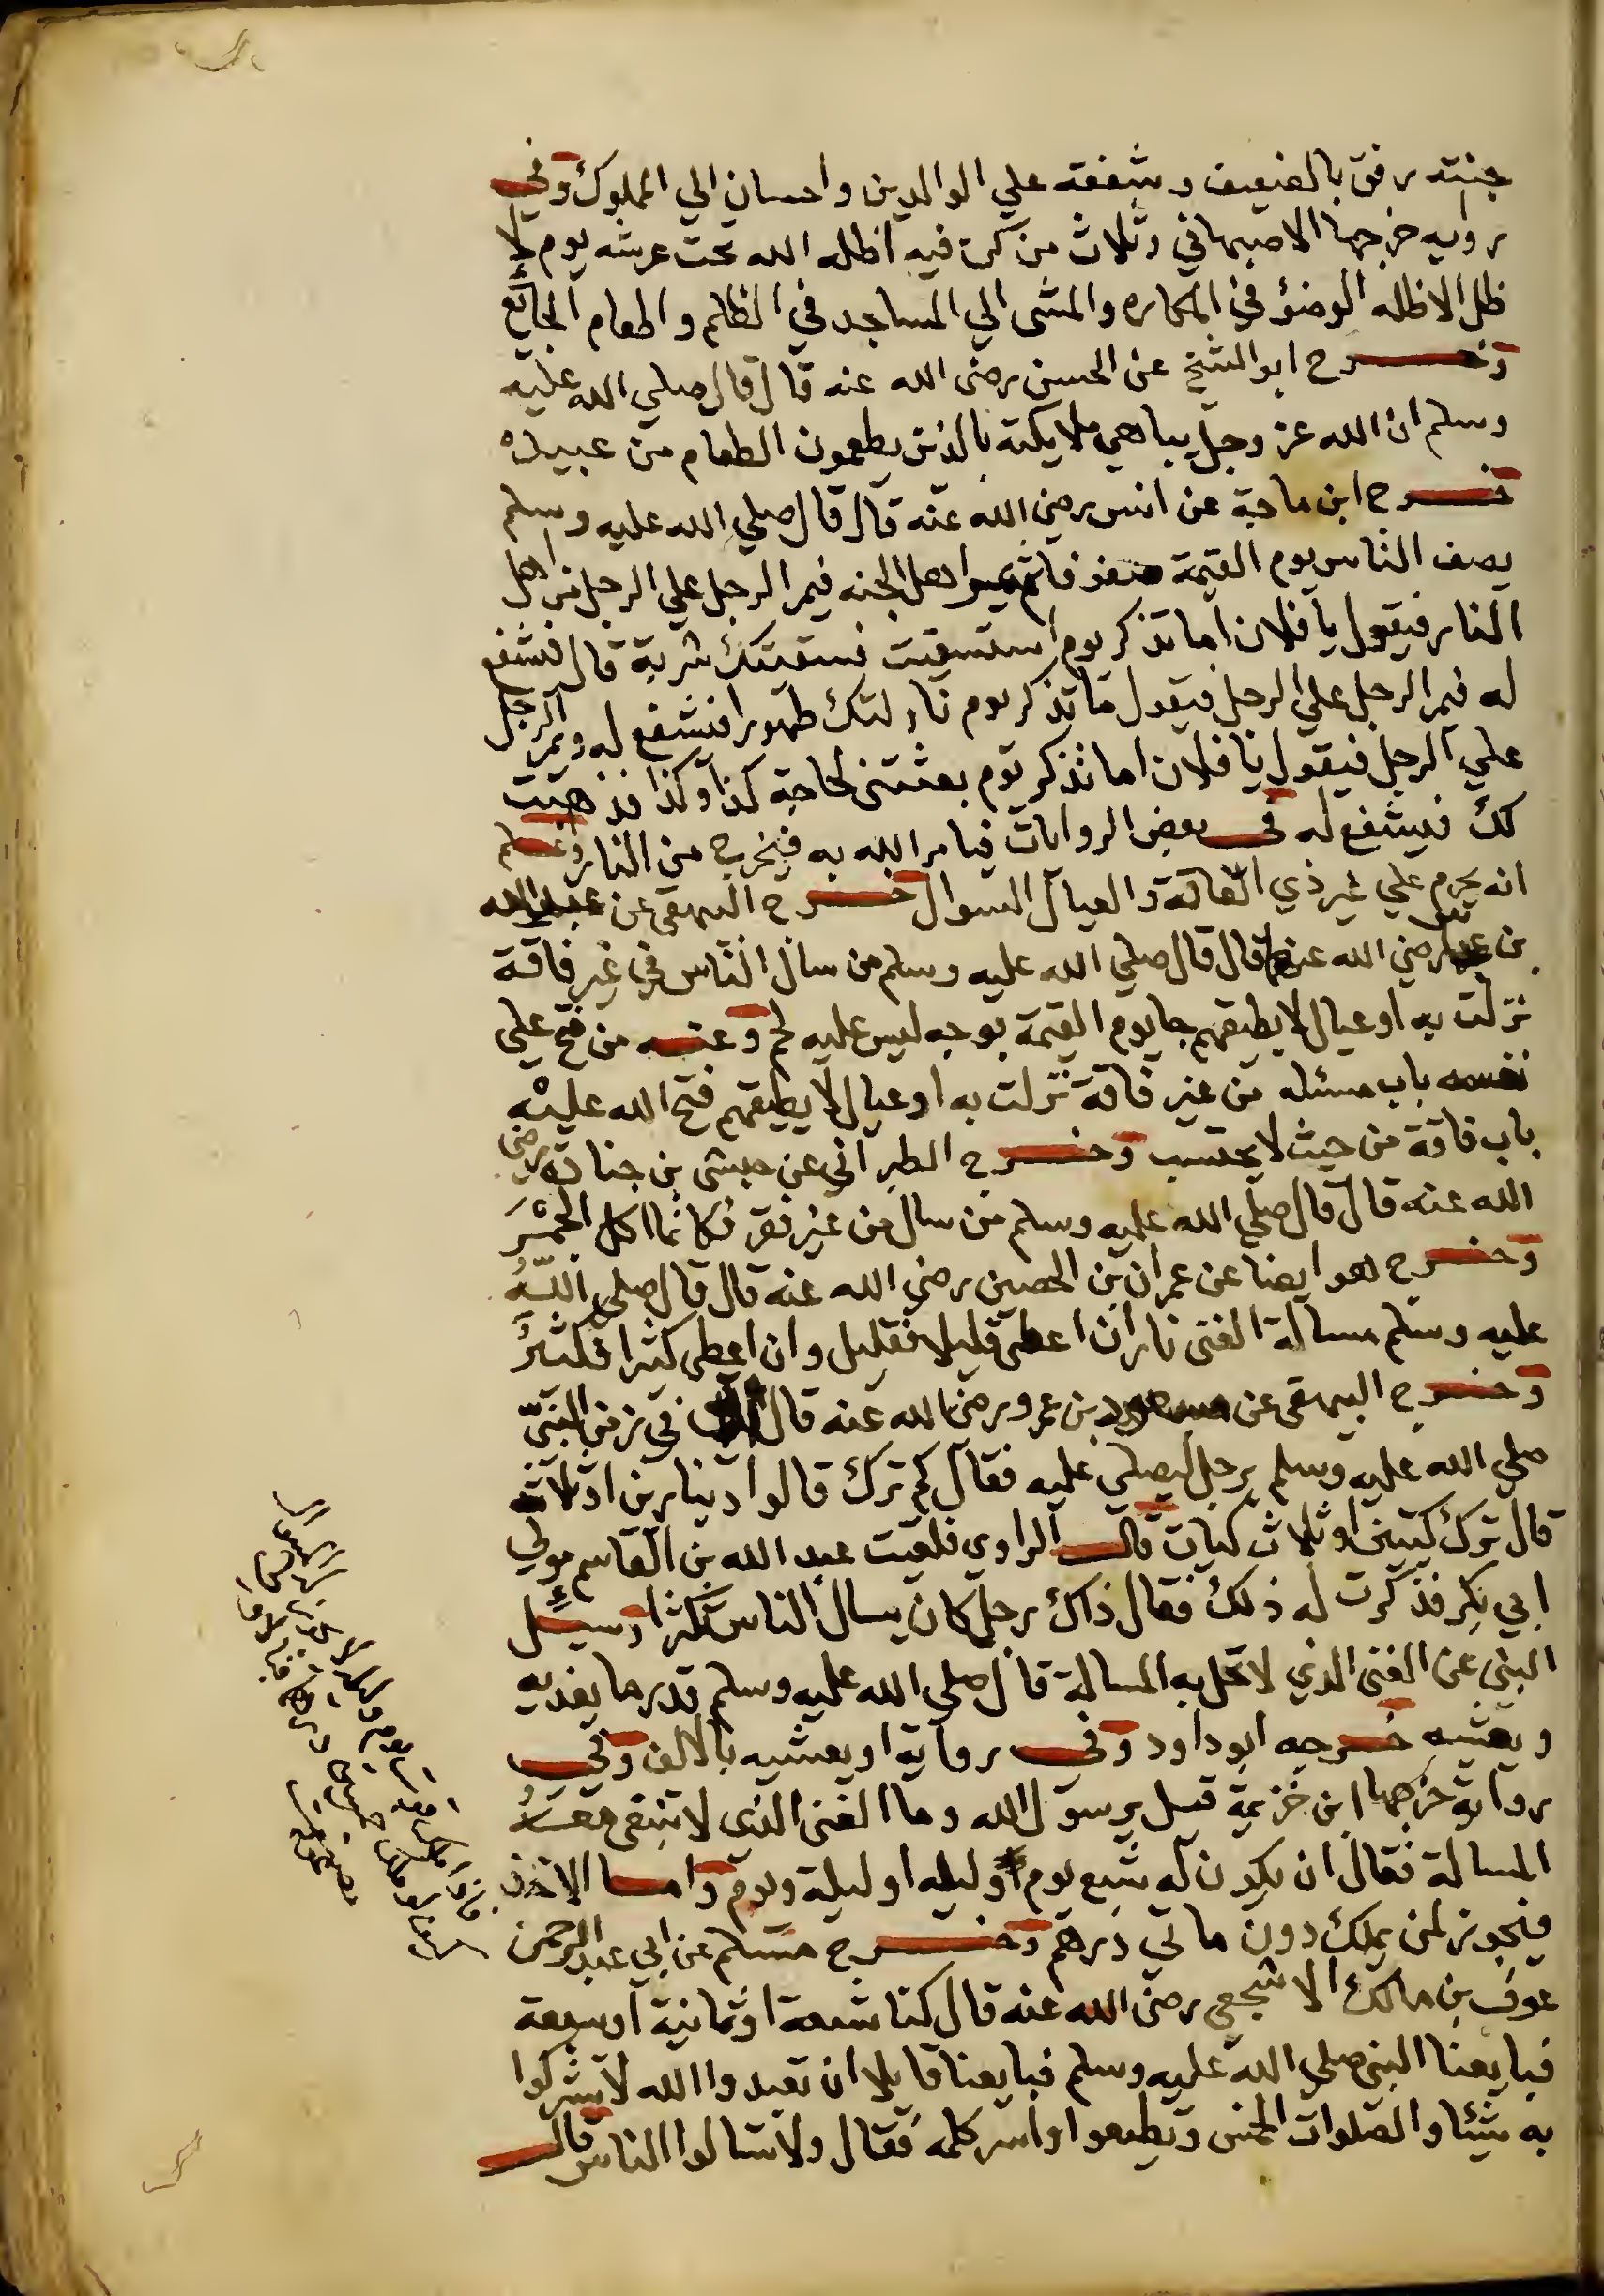 جنته رفق بالضعيف وشفقه علي الوالدين واحسان الي المملوك وفي
روايه خرجها الاصبهاني وثلاث من كن فيه اظله الله تحت عرشه يوم لا
ظل الا ظله الوضؤ في المكاره والمشى الي المساجد في الظلم واطعام الجائع
وخرح ابو الشيخ عن الحسن رضى الله عنه قال قال صلي الله عليه
وسلم ان الله عز وجل يباهي ملايكته بالذين يطعمون الطعام من عبيده
خرح ابن ماجة عن انس رضي الله عنه قال قال صلي الله عليه وسلم
يصف الناس يوم القيمة صفوفا ثم يمر اهل الجنه فيمر الرجل علي الرجل من اهل
النار فيقول يا فلان اما تذكر يوم استسقيت فسقيتك شربة قال فيشفع
له فيمر الرجل علي الرجل فيقول ما تذكر يوم ناولتك طهورا فيشفع له ويمر الرجل
علي الرجل فيقول يا فلان اما تذكر يوم بعثتنى لحاجة كذا وكذا فذهبت
لك فيشفع له في بعض الروايات فيامر الله به فيخرج من النار وعلم
انه يحرم علي غير ذي الفاقة والعيال السوال خرح البيهقى عن عبد الله
بن عباس رضي الله عنهما قال قال صلي الله عليه وسلم من سال الناس في غير فاقة
نزلت به او عيال لا يطيقهم جا يوم القيمة بوجه ليس عليه لحم وعنه من فتح علي
نفسه باب مسئله من غير فاقة نزلت به او عيال لا يطيقهم فتح الله عليه
باب فاقة من حيث لا يحتسب وخرح الطبراني عن حبشى بن جنادة رضى
الله عنه قال قال صلي الله عليه وسلم من سال من غير فقر فكانما اكل الجمر
وخرح هو ايضا عن عمران بن الحصين رضي الله عنه قال قال صلي الله
عليه وسلم مسالة الغنى نار ان اعطى قليلا فقليل وان اعطى كثيرا فكثير
وخرح البيهقى عن مسعود بن عمرو رضى الله عنه قال في زمن النبي
صلي الله عليه وسلم برجل ليصلي عليه فقال كم ترك قالوا دينارين او ثلاثة
قال ترك كيتين او ثلاث كيات قال الراوي فلقيت عبد الله بن القاسم مولي
ابي بكر فذكرت له ذلك فقال ذاك رجل كان يسال الناس تكثرا وسيئل
النبي عن الغنى الذي لا تحل به المسالة قال صلي الله عليه وسلم قدر ما يغديه
ويعشيه خرجه ابو داود وفي رواية او يعشيه بالالف وفي
رواية خرجها ابن خزيمة قيل يرسول الله وما الغنى الذي لا تنبغى معه
المسالة فقال ان يكون له شبع يوم وليله او ليلة ويوم واما الاخذ
فيجوز لمن يملك دون مائي درهم وخرح مسلم عن ابي عبد الرحمن
عوف بن مالك الاشجعى رضى الله عنه قال كنا تسعة او ثمانية او سبعة
فبايعنا النبي صلي الله عليه وسلم فبايعنا قايلا ان تعبدوا الله لا تشركوا
به شيئا والصلوات الخمس وتطيعوا واسر كلمه فقال ولا تسالوا الناس قال